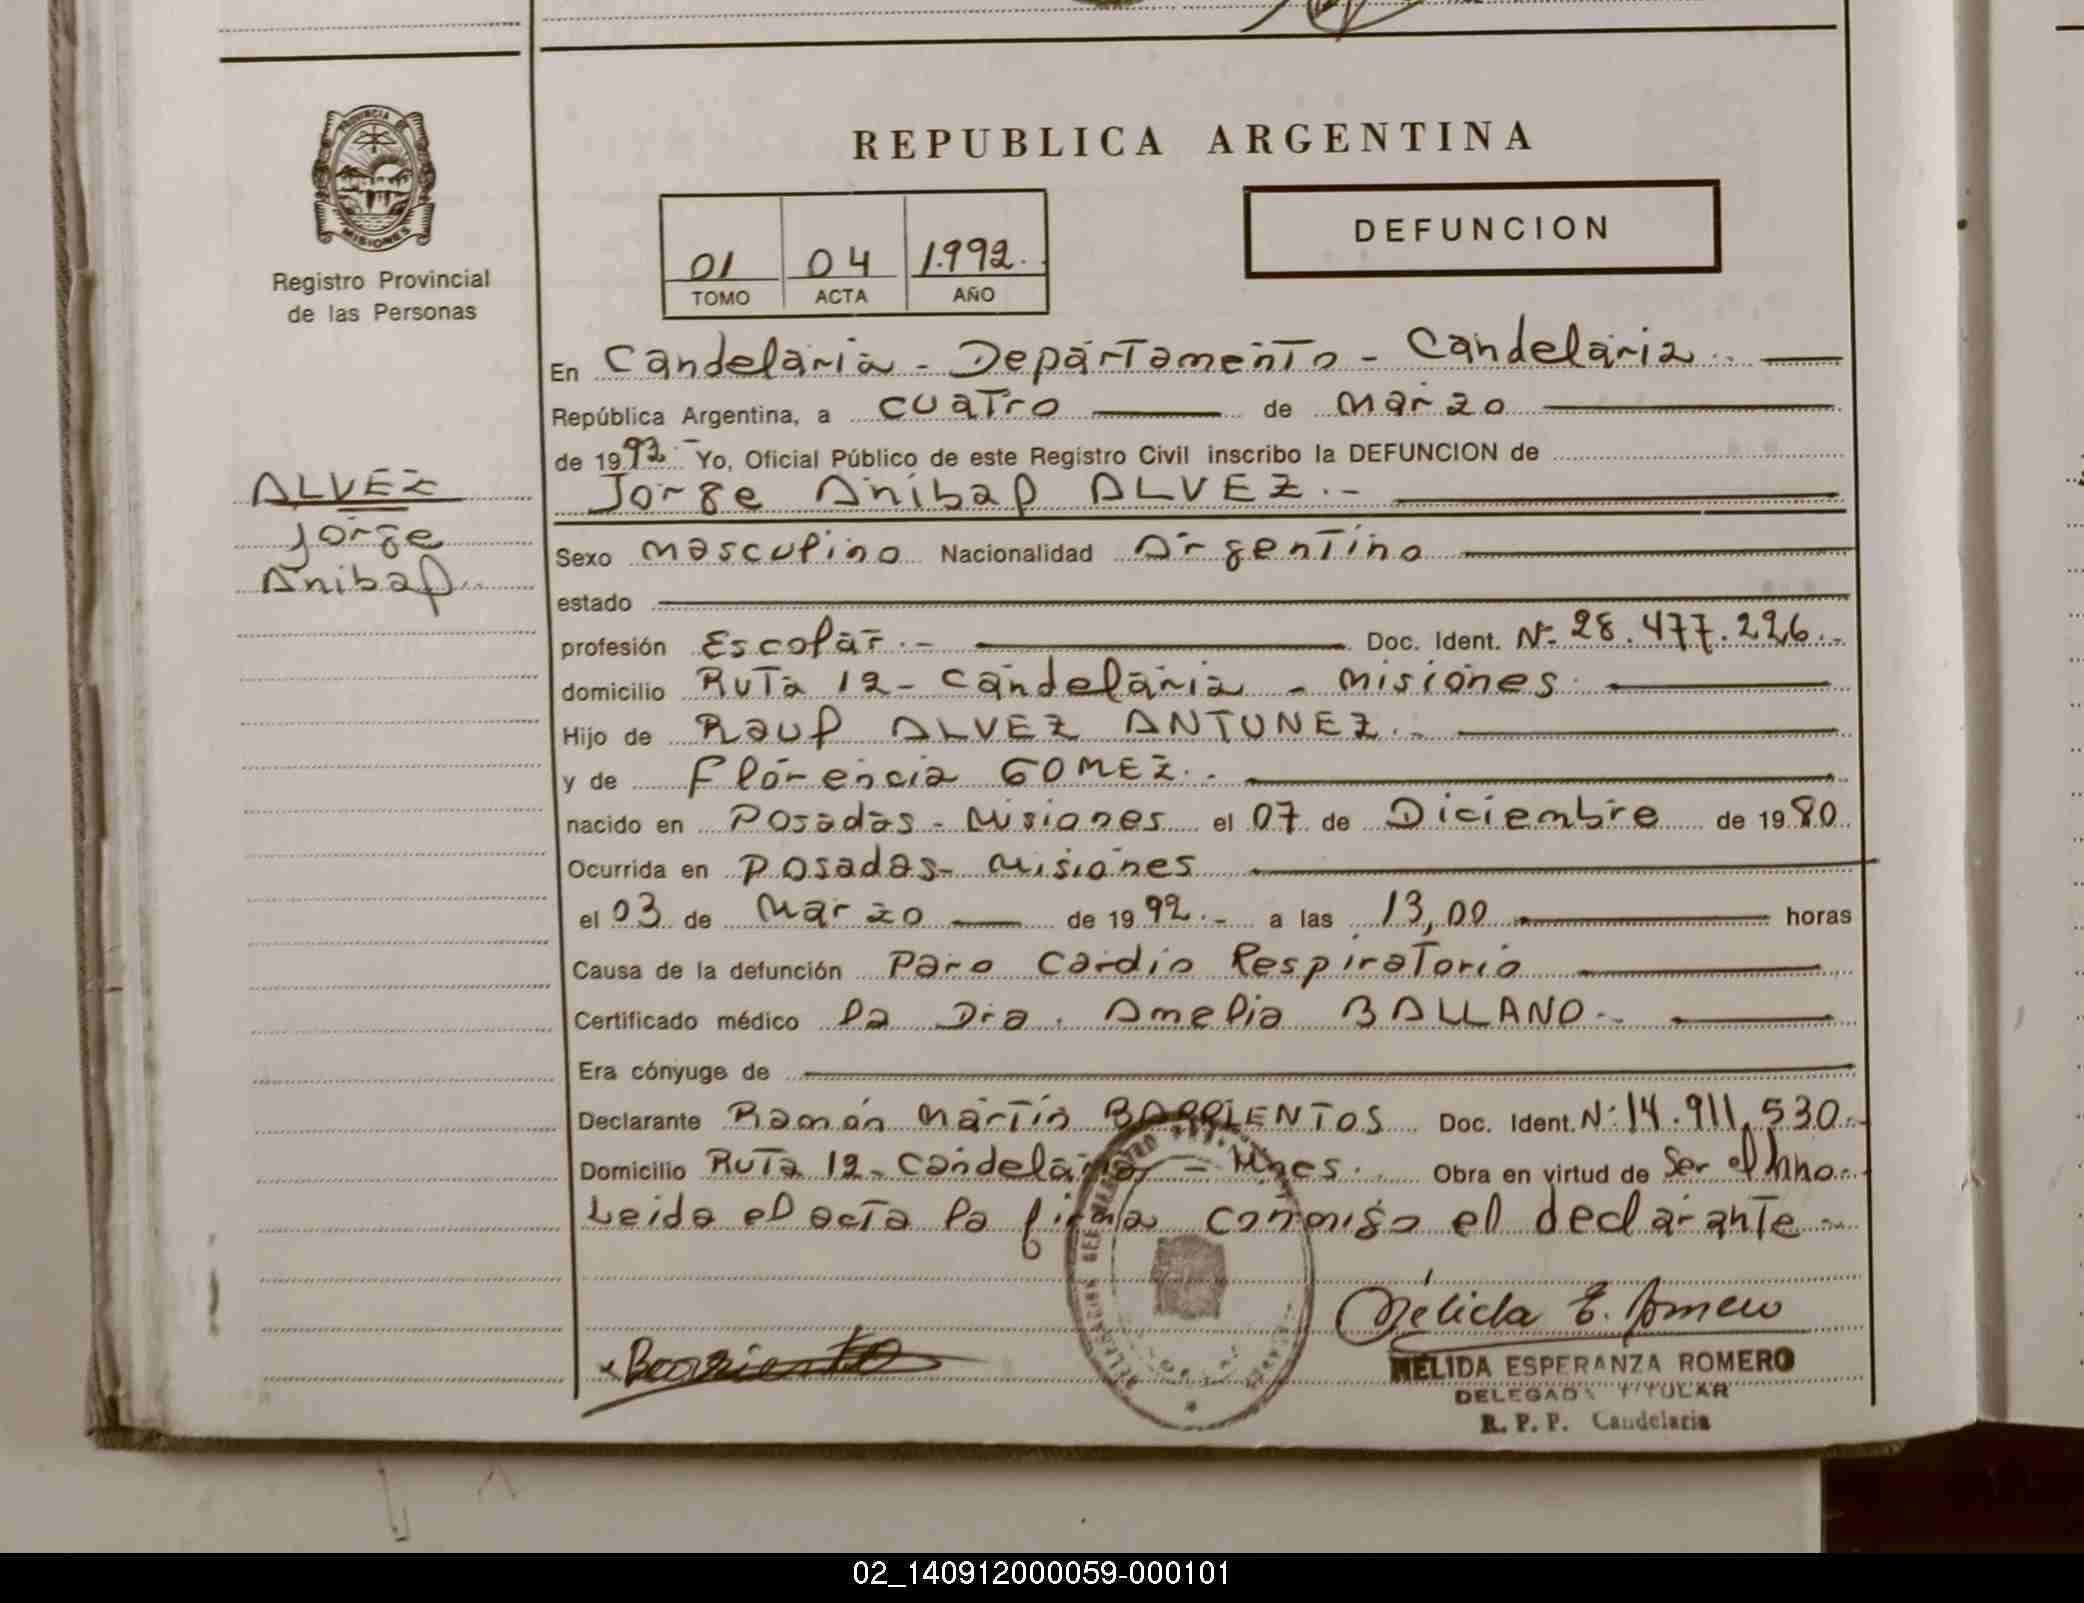 REPUBLICA ARGENTINA
PROVINCIA DE
MISIONES
Registro Provincial
de las Personas
01 04 1.992.
TOMO ACTA AÑO
DEFUNCION
En Candelaria - Departamento - Candelaria.-
República Argentina, a cuatro de marzo
de 1992.- Yo, Oficial Público de este Registro Civil inscribo la DEFUNCION de
Jorge Anibal ALVEZ.-
ALVEZ
Jorge
Anibal
Sexo masculino Nacionalidad Argentino
estado
profesión Escolar.- Doc. Ident. Nº 28.477.226.-
domicilio Ruta 12 - Candelaria - Misiones.
Hijo de Raul ALVEZ ANTUNEZ.-
y de Florencia GOMEZ.-
nacido en Posadas - Misiones el 07 de Diciembre de 1980
Ocurrida en Posadas - Misiones
el 03 de Marzo de 1992.- a las 13,00 horas
Causa de la defunción Paro Cardio Respiratorio
Certificado médico la Dra. Amelia BALLANO.-
Era cónyuge de
Declarante Ramón Martín BARRIENTOS Doc. Ident. Nº 14.911.530.-
Domicilio Ruta 12 - Candelaria - Mnes. Obra en virtud de Ser el
Leida el acta la firma conmigo el declarante -
Barriento
Nélida E. Romero
NELIDA ESPERANZA ROMERO
DELEGADA TITULAR
R. P. P. Candelaria
02_140912000059-000101